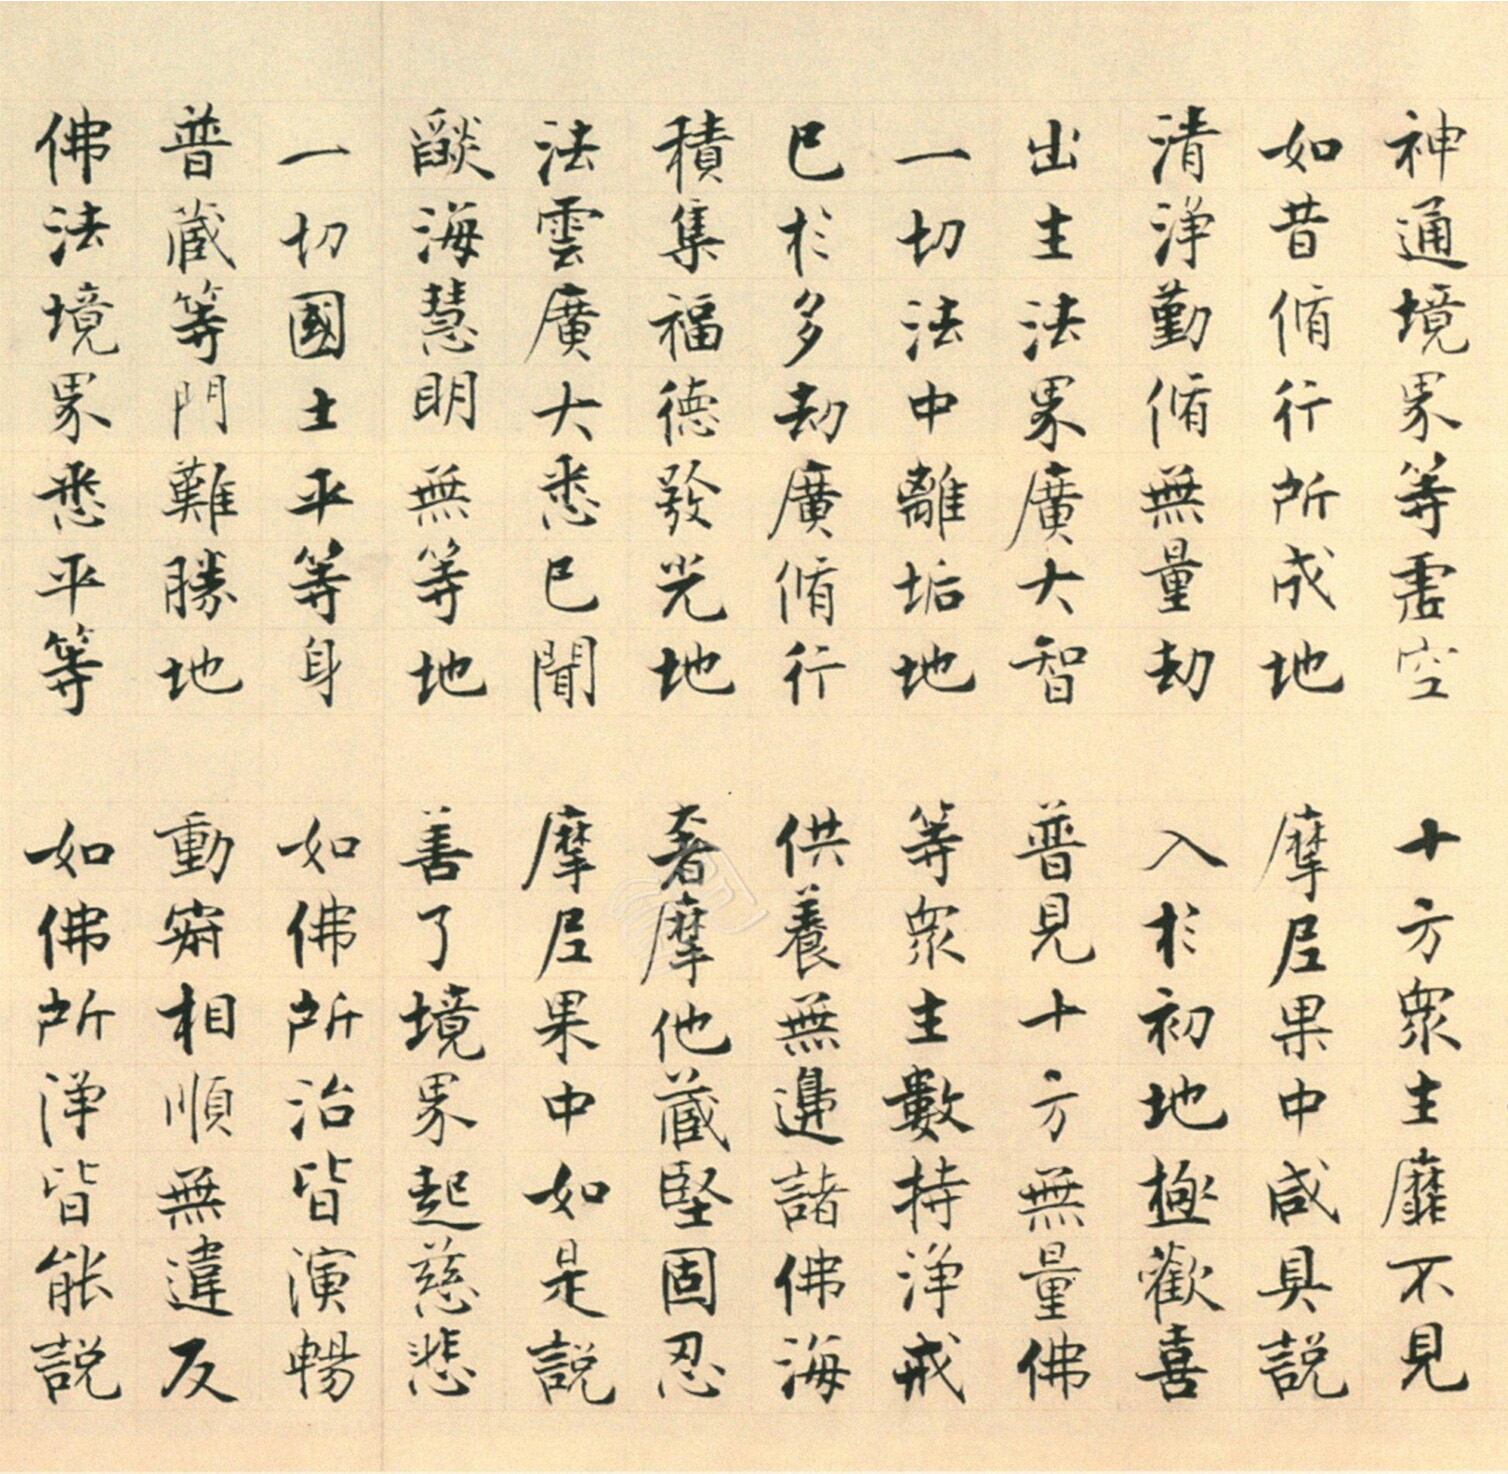 神通境界等虛空　十方衆生靡不見
如昔脩行所成地　摩尼果中咸具說
清淨勤脩無量劫　入於初地極歡喜
出生法界廣大智　普見十方無量佛
一切法中離垢地　等衆生數持淨戒
已於多劫廣脩行　供養無邊諸佛海
積集福德發光地　奢摩他藏堅固忍
法雲廣大悉已聞　摩尼果中如是說
燄海慧明無等地　善了境界起慈悲
一切國土平等身　如佛所治皆演暢
普藏等門難勝地　動寂相順無違反
佛法境界悉平等　如佛所淨皆能說